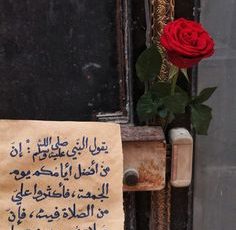 يقول النبي ﷺ: إن
من أفضل أيامكم يوم
الجمعة، فأكثروا علي
من الصلاة فيه، فإن